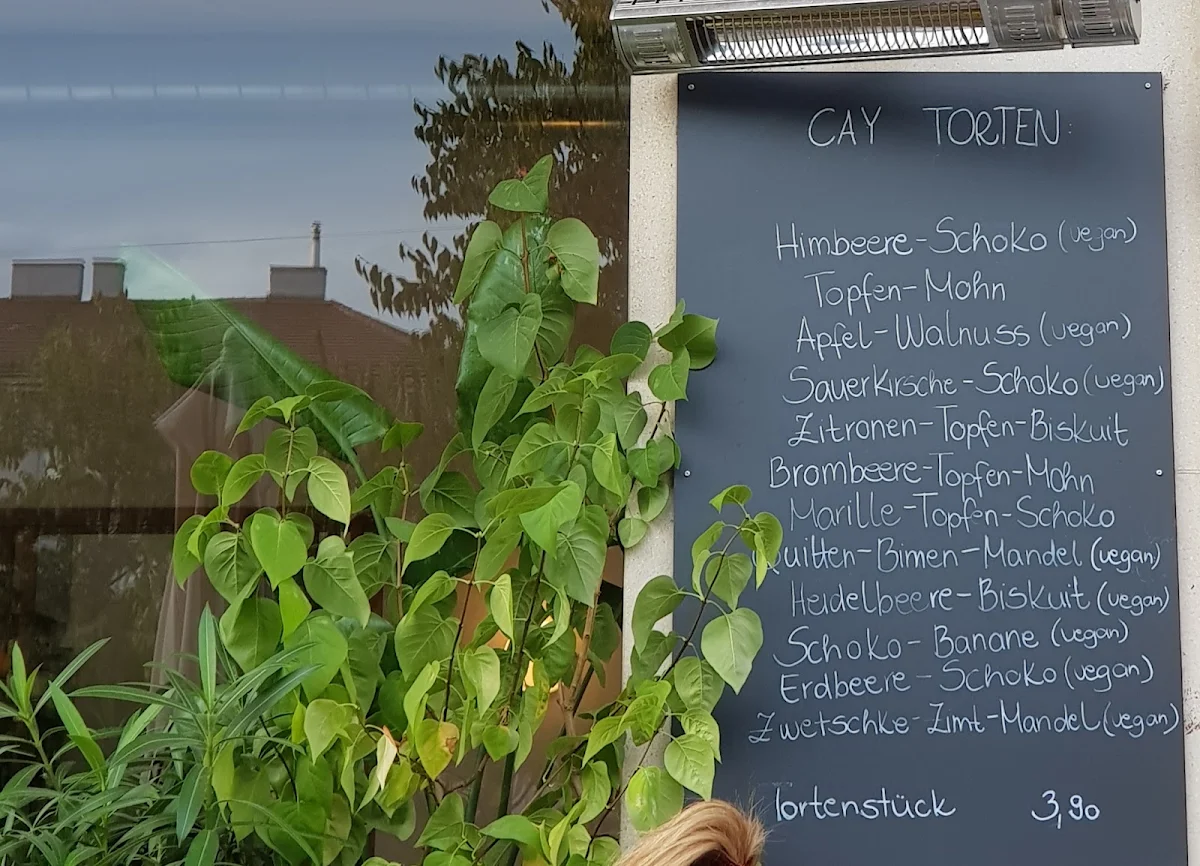 CAY TORTEN:
Himbeere-Schoko (vegan)
Topfen-Mohn
Apfel-Walnuss (vegan)
Sauerkirsche-Schoko (vegan)
Zitronen-Topfen-Biskuit
Brombeere-Topfen-Mohn
Marille-Topfen-Schoko
Quitten-Birnen-Mandel (vegan)
Heidelbeere-Biskuit (vegan)
Schoko-Banane (vegan)
Erdbeere-Schoko (vegan)
Zwetschke-Zimt-Mandel (vegan)
Tortenstück 3,90